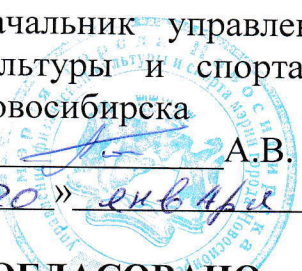 ачальник управлен
льтуры и спорта
овосибирска
А.В.
20 » января
ОГЛАСОВАНО